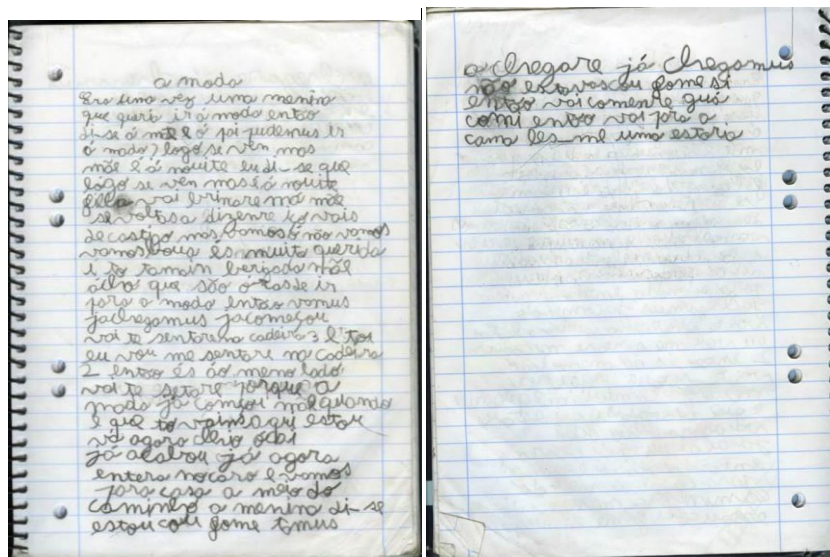 a moda
Era uma vez uma menina
que queria ir á moda então
di-se á mãe e ó pai pudemus ir
á moda? logo se ven mas
mãe é á nouite eu di-se que
logo se ven mas é á nouite
filha vai brinare má mãe
se voltas a dizenre ko vais
de castigo mas vamos ó não vamos
vamos boua és muito querida
i to tamain brigada mãe
acho que são oras de ir
para a moda então vamus
jachegamus jacomeçou
vai te sentarena cadeira 3 e tou
eu vou me sentare na cadeira
2 então és áo meno lado
vai te setare porque a
moda já começou mãe quando
é que to vains aqui estou
vá agora
já acabou já agora
entera nocaro e vamos
para casa a meio do
caminho a menina di-se
estou cou fome temus
a chegare já chegamus
não estavas cou fome si
então vai comenre quá
comi então vai para a
cama les-me uma estaria